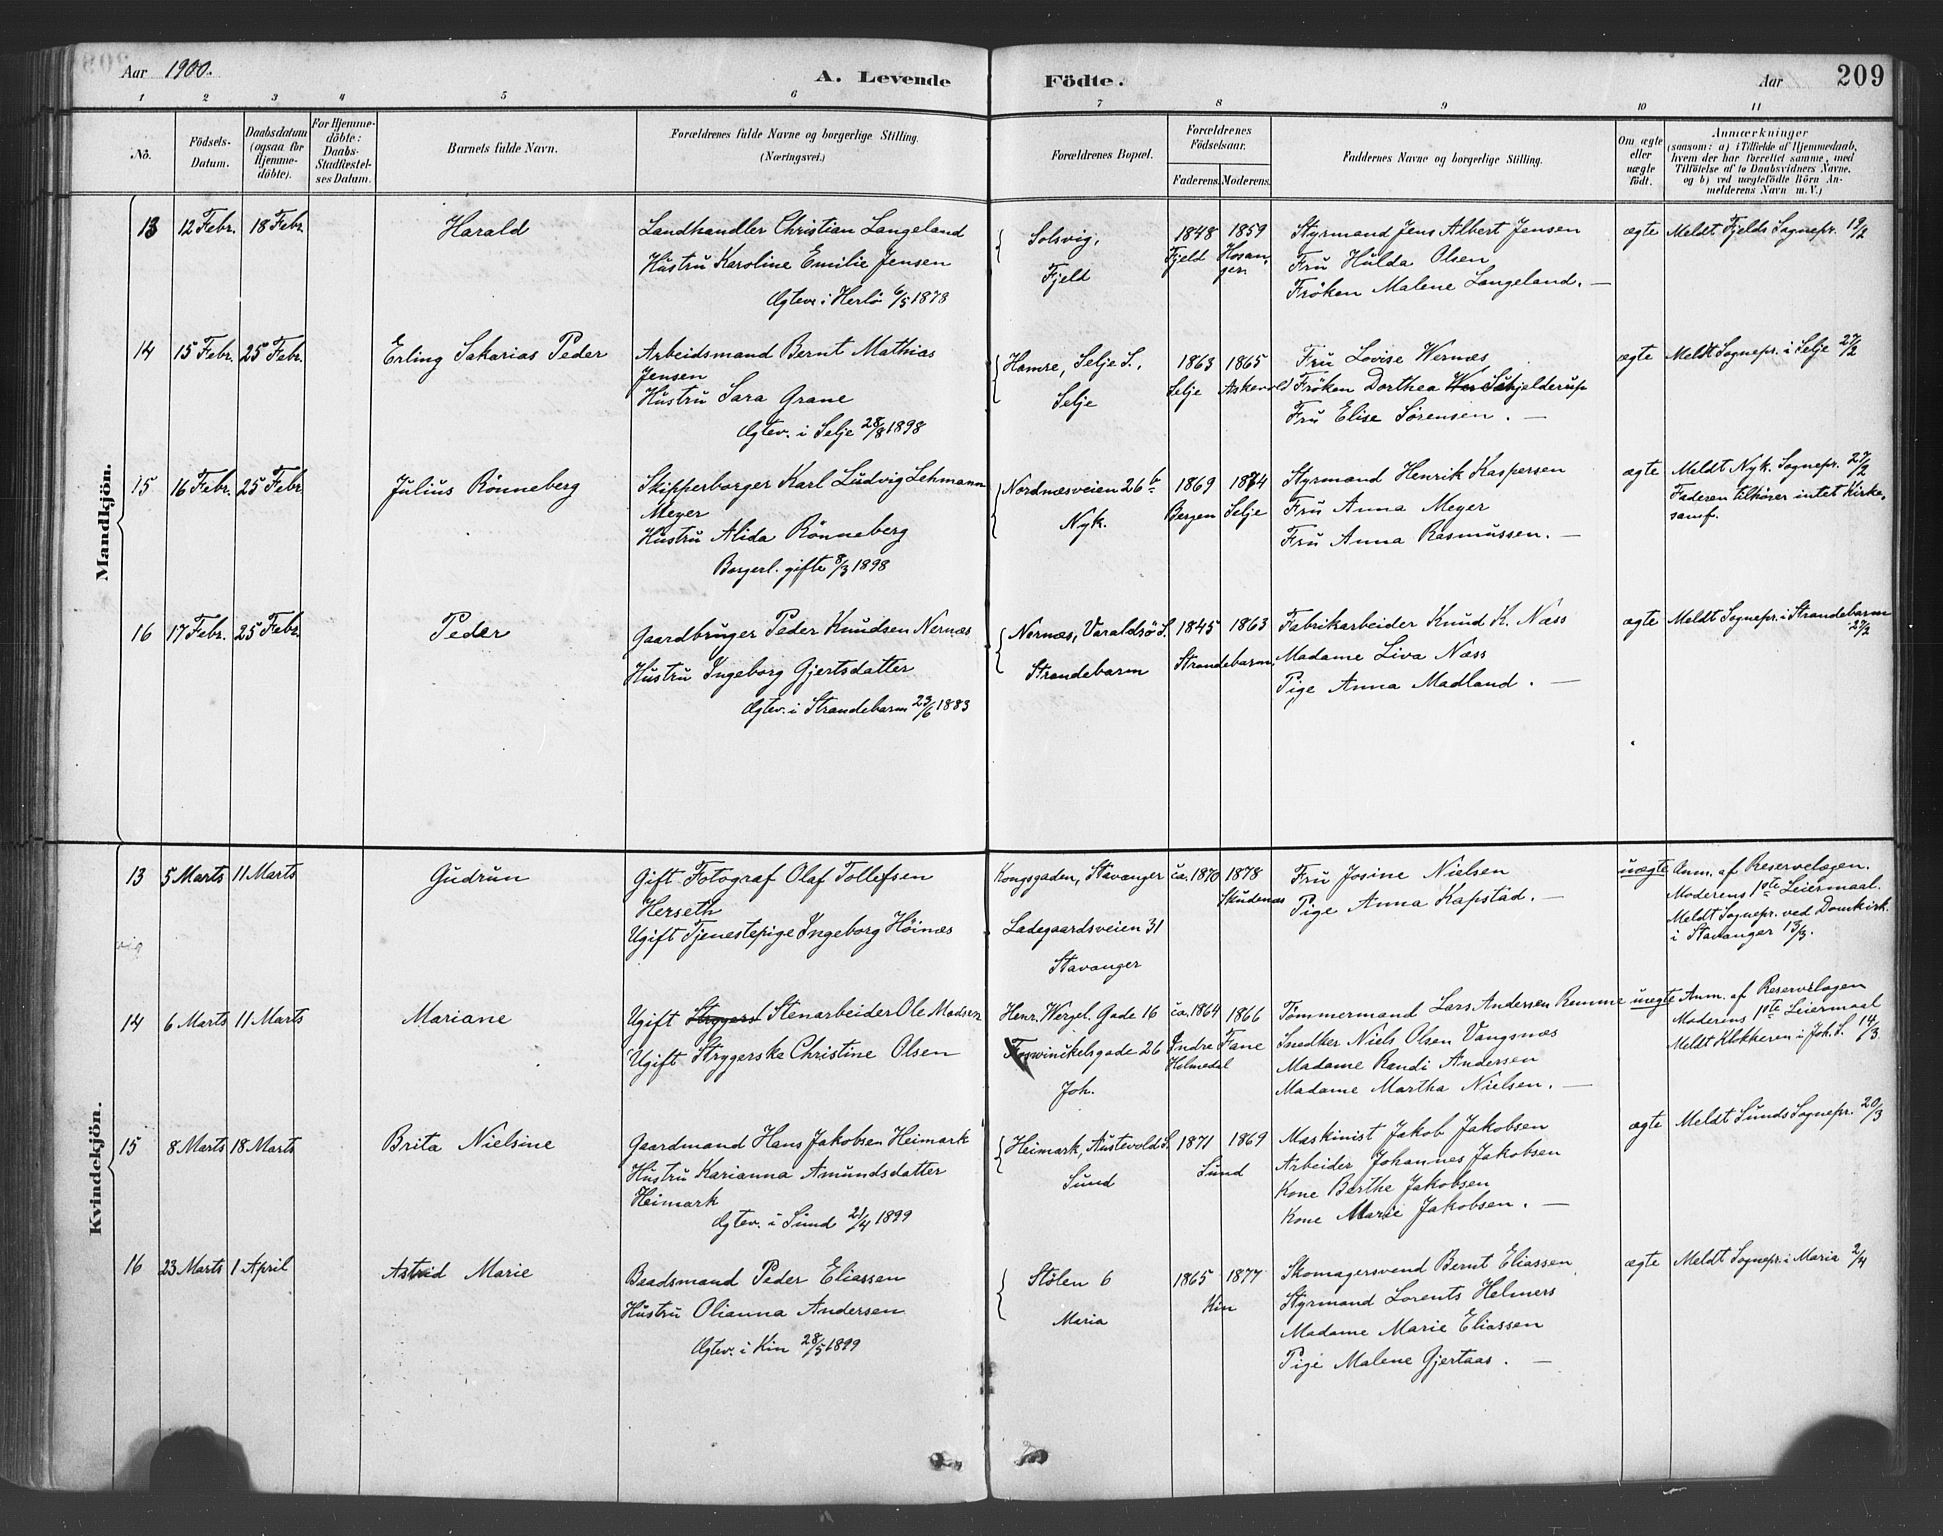 Aar 1900.
A. Levende Födte.
Aar 209
1 2 3 4 5 6 7 8 9 10 11
No.
Födsels-Datum.
Daabsdatum (ogsaa for Hjemme-döbte).
For Hjemme-döbte: Daabs-Stadfæstel-ses Datum.
Barnets fulde Navn.
Forældrenes fulde Navne og borgerlige Stilling. (Næringsvei.)
Forældrenes Bopæl.
Forældrenes Födselsaar.
Faderens. Moderens.
Faddernes Navne og borgerlige Stilling.
Om ægte eller uægte födt.
Anmærkninger
(saasom: a) i Tilfælde af Hjemmedaab, hvem der har forrettet samme, med Tilföielse af to Daabsvidners Navne, og b) ved uægtefödte Börn An-melderens Navn m. V.)
Mandkjön.
13 12 Febr. 18 Febr. Harald
Landhandler Christian Langeland
Hustru Karoline Emilie Jensen
Ægtev. i Herlö 6/5 1878
Solsvig,
Fjeld
1848 1859
Fjeld Hosan-
ger.
Styrmand Jens Albert Jensen
Fru Hulda Olsen
Fröken Malene Langeland. —
ægte Meldt Fjelds Sognepr. 19/2
14 15 Febr. 25 Febr. Erling Sakarias Peder
Arbeidsmand Bernt Mathias
Jensen
Hustru Sara Grane
Ægtev. i Selje 28/8 1898
Hamre, Selje S.,
Selje
1863 1865
Selje Askevold
Fru Lovise Wernæs
Fröken Dorthea Schjelderup
Fru Elise Sörensen. —
ægte Meldt Sognepr. i Selje 27/2
15 16 Febr. 25 Febr Julius Rönneberg
Skipperborger Karl Ludvig Lehmann
Meyer
Hustru Alida Rönneberg
Borgerl. gifte 8/3 1898
Nordnæsveien 26 b
Nyk.
1869 1874
Bergen Selje
Styrmand Henrik Kaspersen
Fru Anna Meyer
Fru Anna Rasmussen. —
ægte Meldt Nyk. Sognepr. 27/2
Faderen tilhører intet Kirke-
samf.
16 17 Febr. 25 Febr. Peder
Gaardbruger Peder Knudsen Nernæs
Hustru Ingeborg Gjertsdatter
Ægtev. i Strandebarm 23/6 1883
Nernæs, Varaldsö S.
Strandebarm
1845 1863
Strandebarm.
Fabrikarbeider Knud K. Næss
Madame Liva Næss
Pige Anna Madland. —
ægte Meldt Sognepr. i Strandebarm
27/2
Kvindekjön.
13 5 Marts 11 Marts Gudrun
Gift Fotograf Olaf Tollefsen
Herseth
Ugift Tjenestepige Ingeborg Höinæs
Kongsgaden, Stavanger
Ladegaardsveien 31
Stavanger
ca. 1870 1878
Skudenæs
Fru Josine Nielsen
Pige Anna Kapstad. —
uægte Anm. af Reservelægen.
Moderens 1ste Leiermaal.
Meldt Sognepr. ved Domkirk.
i Stavanger 13/3.
14 6 Marts 11 Marts Mariane
Ugift Stenarbeider Ole Madsen
Ugift Strygerske Christine Olsen
Henr. Wergel. Gade 16
Forswinckelsgade 26
Joh.
ca. 1864 1866
Indre Fane
Holmedal
Tömmermand Lars Andersen Remme
Snedker Niels Olsen Vangsnæs
Madame Randi Andersen
Madame Martha Nielsen. —
uægte Anm. af Reservelægen
Moderens 1ste Leiermaal
Meldt Klokkeren i Joh. S. 14/3
15 8 Marts 18 Marts Brita Nielsine
Gaardmand Hans Jakobsen Heimark
Hustru Karianna Amundsdatter
Heimark
Ægtev. i Sund 21/4 1899
Heimark, Austevold S.
Sund
1871 1869
Sund
Maskinist Jakob Jakobsen
Arbeider Johannes Jakobsen
Kone Berthe Jakobsen
Kone Marie Jakobsen. —
ægte Meldt Sunds Sognepr. 20/3
16 23 Marts 1 April Astrid Marie
Baadsmand Peder Eliassen
Hustru Olianna Andersen
Ægtev. i Kin 28/5 1899
Stölen 6
Maria
1865 1877
Kin
Skomagersvend Bernt Eliassen
Styrmand Lorents Helmers
Madame Marie Eliassen
Pige Malene Gjertaas. —
ægte Meldt Sognepr. i Maria 2/4